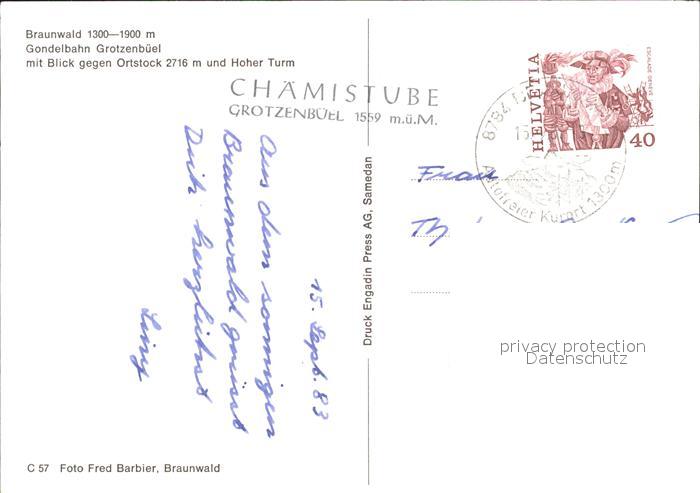 Braunwald 1300—1900 m
Gondelbahn Grotzenbüel
mit Blick gegen Ortstock 2716 m und Hoher Turm
CHÄMISTUBE
GROTZENBÜEL 1559 m.ü.M.
HELVETIA
ESCALADE GENÈVE
40
8784
Autofreier Kurort 1300m
15. Sept. 83
Aus dem sonnigen
Braunwald grüsst
Dich herzlichst
Frau
Druck Engadin Press AG, Samedan
privacy protection
Datenschutz
C 57 Foto Fred Barbier, Braunwald